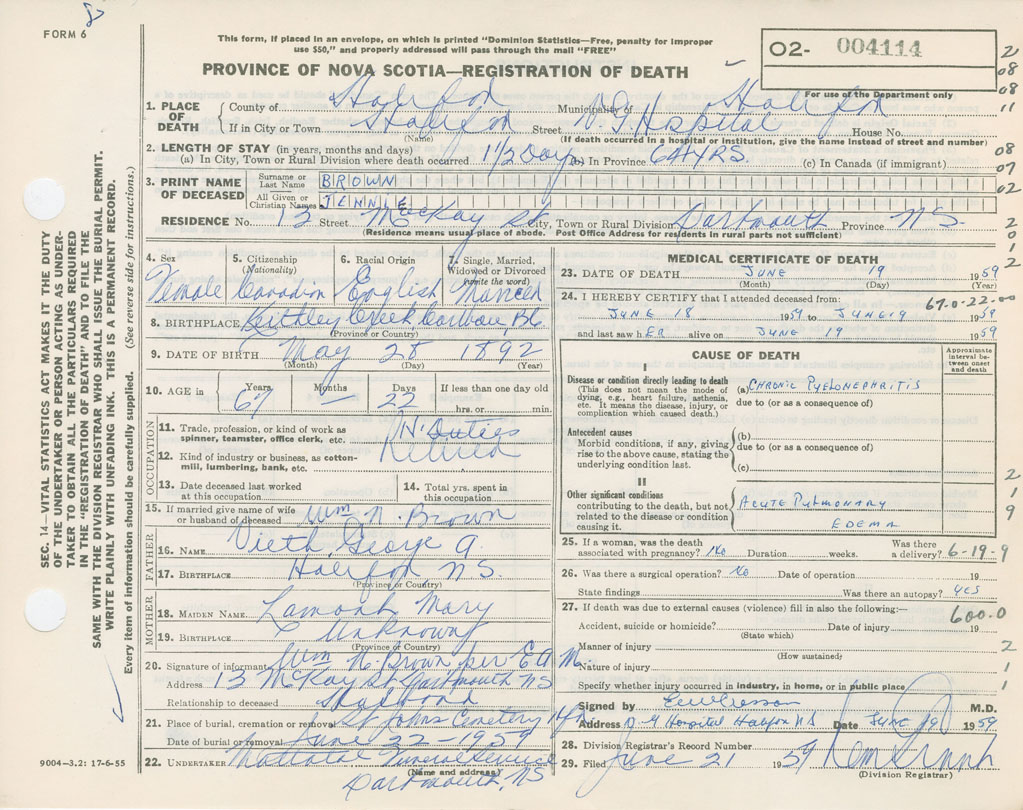 8
FORM 6
This form, if placed in an envelope, on which is printed "Dominion Statistics—Free, penalty for improper
use $50," and properly addressed will pass through the mail "FREE"
PROVINCE OF NOVA SCOTIA—REGISTRATION OF DEATH
O2- 004114
For use of the Department only
1. PLACE OF DEATH County of Halifax Municipality of Halifax
If in City or Town Halifax Street V G Hospital House No.
(Name) (If death occurred in a hospital or institution, give the name instead of street and number)
2. LENGTH OF STAY (in years, months and days)
(a) In City, Town or Rural Division where death occurred 1 1/2 Days (b) In Province 64 YRS. (c) In Canada (if immigrant)
3. PRINT NAME OF DECEASED Surname or Last Name BROWN
All Given or Christian Names JENNIE
RESIDENCE No. 13 Street McKay St City, Town or Rural Division Dartmouth Province NS
(Residence means usual place of abode. Post Office Address for residents in rural parts not sufficient)
4. Sex Female
5. Citizenship (Nationality) Canadian
6. Racial Origin English
7. Single, Married, Widowed or Divorced (write the word) Married
8. BIRTHPLACE Keithley Creek, Cariboo, BC
(Province or Country)
9. DATE OF BIRTH May 28 1892
(Month) (Day) (Year)
10. AGE in Years 67 Months — Days 22 If less than one day old hrs. or min.
OCCUPATION
11. Trade, profession, or kind of work as spinner, teamster, office clerk, etc. H. Duties
12. Kind of industry or business, as cotton-mill, lumbering, bank, etc. Retired
13. Date deceased last worked at this occupation
14. Total yrs. spent in this occupation
15. If married give name of wife or husband of deceased Wm N. Brown
FATHER
16. NAME Vieth, George A
17. BIRTHPLACE Halifax NS.
(Province or Country)
MOTHER
18. MAIDEN NAME Lamont Mary
19. BIRTHPLACE Unknown
(Province or Country)
20. Signature of informant Wm N. Brown per E A M.
Address 13 McKay St Dartmouth NS
Relationship to deceased Husband
21. Place of burial, cremation or removal St Johns Cemetery Hfx
Date of burial or removal June 22 - 1959
22. UNDERTAKER Funeral Service
(Name and address)
Dartmouth, NS
MEDICAL CERTIFICATE OF DEATH
23. DATE OF DEATH JUNE 19 1959
(Month) (Day) (Year)
24. I HEREBY CERTIFY that I attended deceased from: 67-0-22-00
JUNE 18 1959 to JUNE 19 1959
and last saw hER alive on JUNE 19 1959
CAUSE OF DEATH
Approximate interval between onset and death
I
Disease or condition directly leading to death
(This does not mean the mode of dying, e.g., heart failure, asthenia, etc. It means the disease, injury, or complication which caused death.)
(a) CHRONIC PYELONEPHRITIS
due to (or as a consequence of)
Antecedent causes
Morbid conditions, if any, giving rise to the above cause, stating the underlying condition last.
(b)
due to (or as a consequence of)
(c)
II
Other significant conditions contributing to the death, but not related to the disease or condition causing it.
ACUTE PULMONARY
EDEMA
25. If a woman, was the death associated with pregnancy? No Duration weeks. Was there a delivery? 6-19-9
26. Was there a surgical operation? No Date of operation 19
State findings Was there an autopsy? yes
27. If death was due to external causes (violence) fill in also the following:—
600.0
Accident, suicide or homicide? Date of injury 19
(State which)
Manner of injury
(How sustained)
Nature of injury
Specify whether injury occurred in industry, in home, or in public place
Signed by M.D.
Address V G Hospital Halifax NS Date June 19 1959
28. Division Registrar's Record Number
29. Filed June 21 1959
(Division Registrar)
2
08
08
11
08
07
02
2
0
1
2
2
1
9
2
1
1
SEC. 14—VITAL STATISTICS ACT MAKES IT THE DUTY
OF THE UNDERTAKER OR PERSON ACTING AS UNDER-
TAKER TO OBTAIN ALL THE PARTICULARS REQUIRED
IN THE "REGISTRATION OF DEATH" AND TO FILE THE
SAME WITH THE DIVISION REGISTRAR WHO SHALL ISSUE THE BURIAL PERMIT.
WRITE PLAINLY WITH UNFADING INK. THIS IS A PERMANENT RECORD.
Every item of information should be carefully supplied. (See reverse side for instructions.)
9004—3.2: 17-6-55